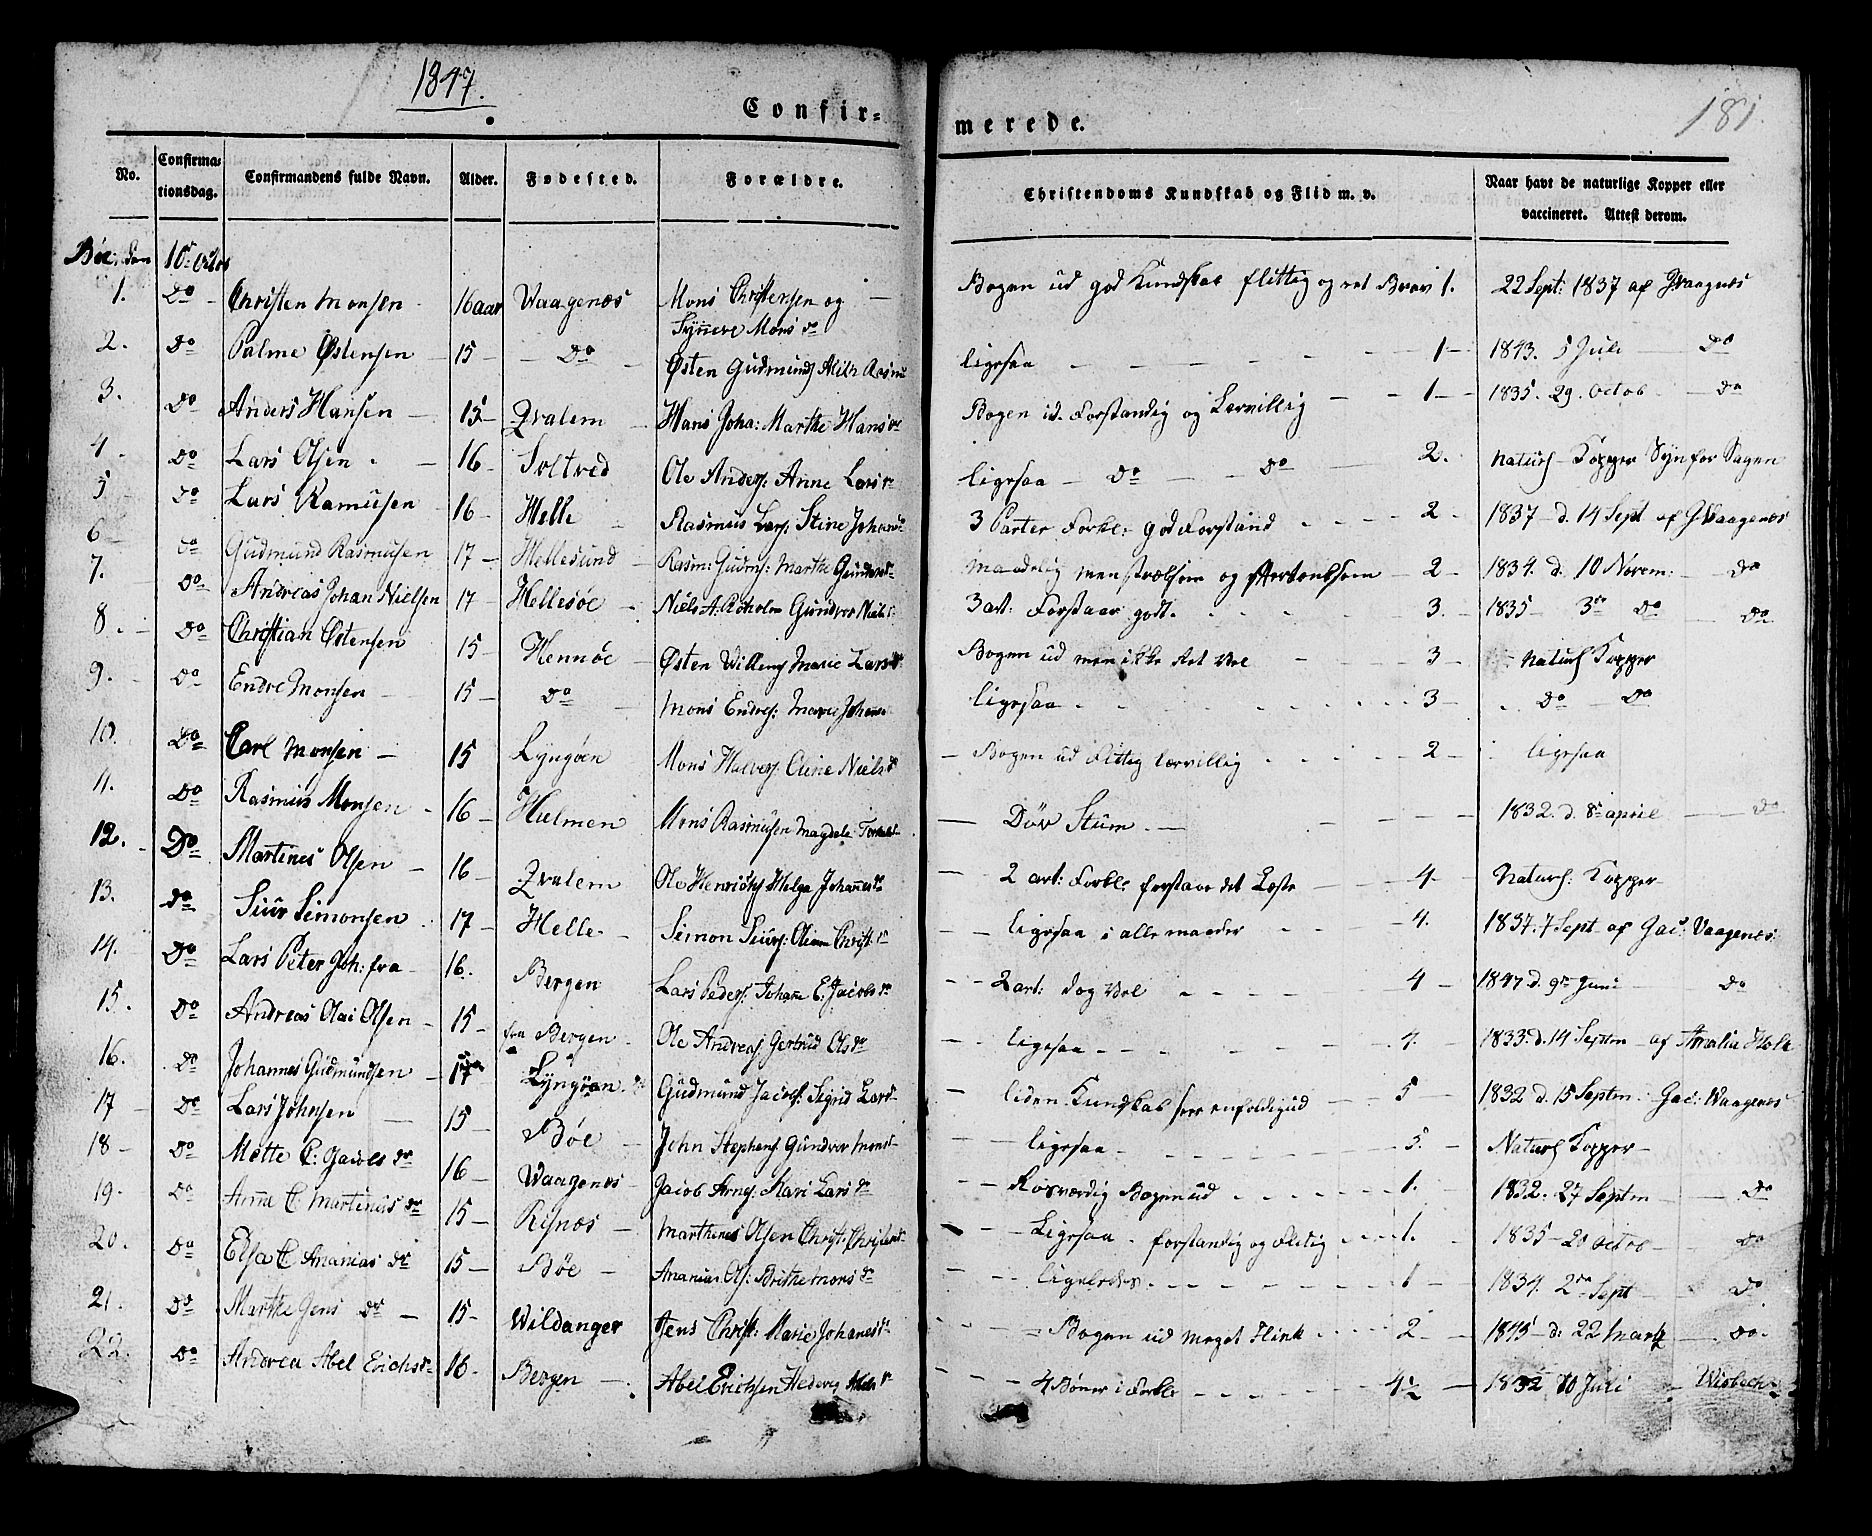 1847.
181.
Confir= merede.
No. Confirma=tionsdag. Confirmandens fulde Navn. Alder. Fødested. Forældre. Christendoms Kundskab og Flid m. v. Naar havt de naturlige Kopper eller vaccineret. Attest derom.
Bøe, den 10de Octob
1. Do Christen Monsen 16 aar Waagenæs Mons Christensen og Synneve Monsdr Bogen ud god Kundskab flittig og ret Brav 1. 22 Sept: 1837 af J Vaagnæs
2. Do Palme Østensen 15 Do Østen Gudmunds ligesaa 1 1843. 5 Juli Do
3. Do Anders Hansen 15 Qvalem Hans Joha: Marthe Hansdr Bogen ud. Forstandig og Lærvillig 1 1835. 29. Octob Do
4. Do Lars Olsen 16 Soltved Ole Anders: Anne Larsdr ligesaa Do Do 2. Naturl. Kopper Syn for Sagen
5 Do Lars Ramusen 16 Helle Rasmus Lars: Stine Johans 3 Parter Forkl: god Forstand 2 1837 d. 14 Sept af J. Vaagenæs
6 Do Gudmund Rasmusen 17 Hellesund Rasm: Gudm: Marthe maadelig men strælsom og 2 1834. d. 10 Novem: Do
7. Do Andreas Johan Nielsen 17 Hellesøe Niels A. Gundvor Niels 3 art: Forstaar godt. 3. 1835 3de Do Do
8. Do Christian Østensen 15 Hennøe Østen Willems Marie Larsdr Bogen ud men ikke Ret Vel 3 Naturl Kopper
9. Do Endre Monsen 15 Do Mons Endres: Marie Johan ligesaa 3 Do Do
10. Do Carl Monsen 15 Lyngøen Mons Halvors: Niels dr Bogen ud flittig lærvillig 2 ligesaa
11. Do Rasmus Monsen 16 Hulmen Mons Rasmusen Magdele Døv Stum. 1832. d. 8de april Do
12. Do Martines Olsen 16 Qvalem Ole Henricks: Helga Johanesdr 2 art: Forkl: forstaar det Læste 4 Naturl: Kopper
13. Do Siur Simonsen 17 Helle Simon Siurs: Christ: ligesaa i alle maader 4. 1834. 7 Sept af Jac: Vaagenæs
14. Do Lars Peter Joh: fra 16. Bergen Lars Peders: Johane E: Jacobsdr 2 art: dog Vel 4 1847 d. 9de Juni Do
15. Do Andreas Olai Olsen 15 fra Bergen Ole Andreas Gertrud Olsdr ligesaa 4. 1833. d. 14 Septm af Amalia Holk
16. Do Johannes Gudmundsen 17 Lyngøen Gudmund Jacobs: Sigrid Lars liden Kundskab seer enfoldig ud 5 1832 d. 15 Septm Jac: Waagenæs
17 Do Lars Johnsen 15 Bøe John Stephens: Gundvor Mons ligesaa 5. Naturl Kopper
18 Do Mette C: Jacobs dr 16 Waagenæs Jacob Arnes Kari Larsdr Rosværdig Bogen ud 1. 1832. 27 Septm Do
19. Do Anna C Martinus dr 15 Risnæs Marthenes Olsen Christ: Christens Ligesaa forstandig og Flitig 1. 1835 20 octob Do
20. Do Elsæ C Ananias dr 15 Bøe Ananias Ols: Brithe Monsdr ligeledes 1 1834. 2den Sept Do
21. Do Marthe Jens dr 15 Wildanger Jens Christ: Marie Johanesdr Bogen ud meget Flink 2 1845 d: 22 Martz Do.
22. Do Andrea Abel Erichsdr 16 Bergen Abel Erichsen 4 Bøner i Forkl: 4½ 1832 10 Juli Wisbech